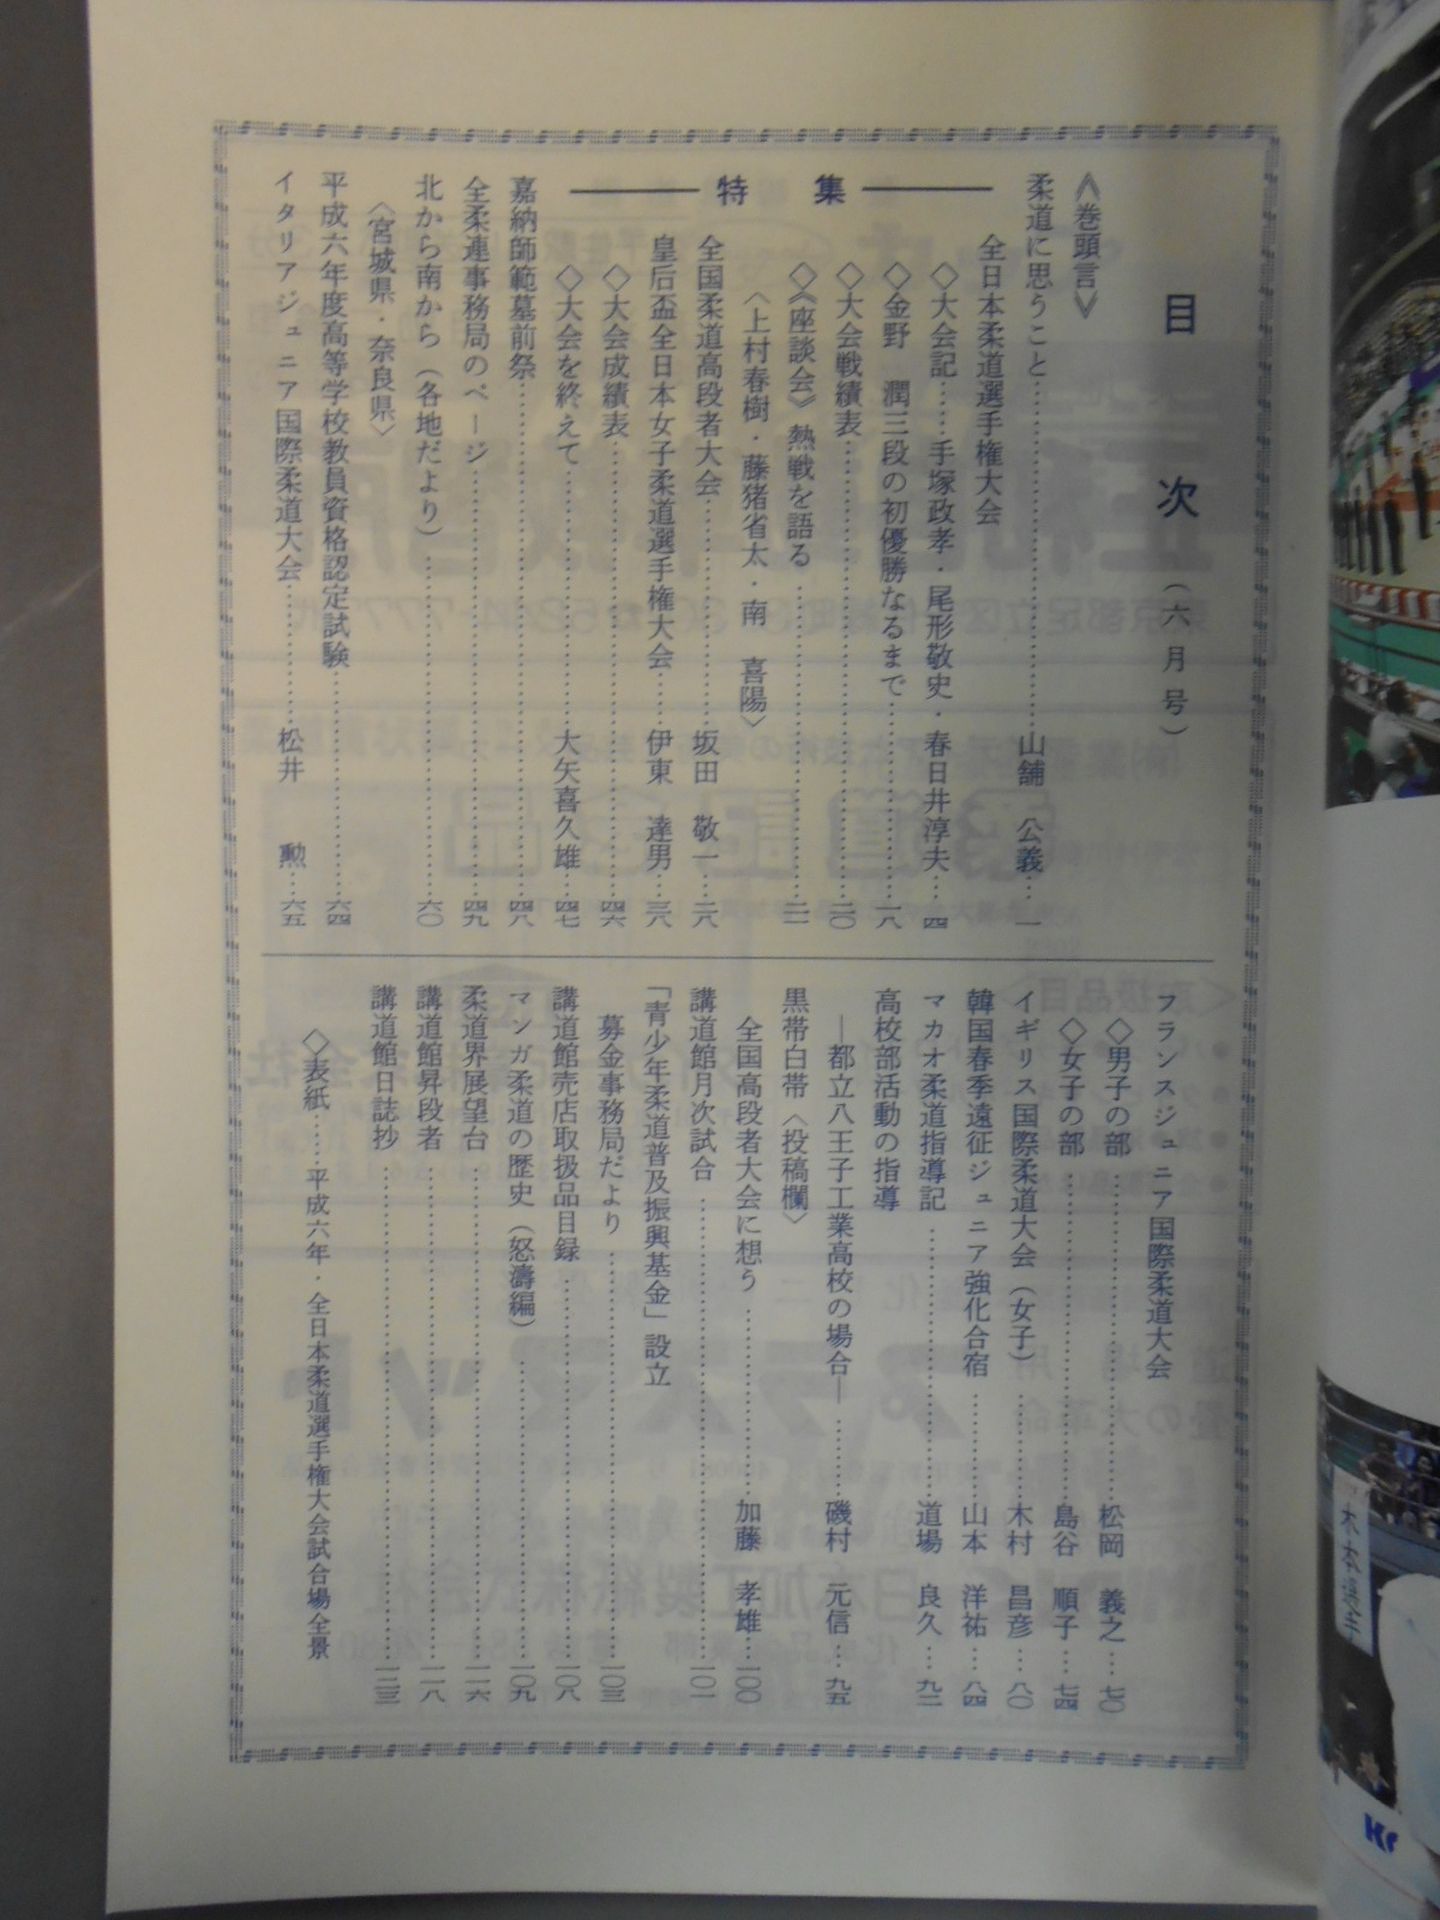 目次（六月号）
《巻頭言》
柔道に思うこと……山舗　公義…一
特集
全日本柔道選手権大会
◇大会記……手塚政孝・尾形敬史・春日井淳夫…四
◇金野　潤三段の初優勝なるまで……一八
◇大会戦績表……二〇
◇《座談会》熱戦を語る……二二
〈上村春樹・藤猪省太・南　喜陽〉
全国柔道高段者大会……坂田　敬一…二八
皇后盃全日本女子柔道選手権大会……伊東　達男…三八
◇大会成績表……四六
◇大会を終えて……大矢喜久雄…四七
嘉納師範墓前祭……四八
全柔連事務局のページ……四九
北から南から（各地だより）……六〇
〈宮城県・奈良県〉
平成六年度高等学校教員資格認定試験……六四
イタリアジュニア国際柔道大会……松井　勲…六五
フランスジュニア国際柔道大会
◇男子の部……松岡　義之…七〇
◇女子の部……島谷　順子…七四
イギリス国際柔道大会（女子）……木村　昌彦…八〇
韓国春季遠征ジュニア強化合宿……山本　洋祐…八四
マカオ柔道指導記……道場　良久…九二
高校部活動の指導
―都立八王子工業高校の場合―……磯村　元信…九五
黒帯白帯〈投稿欄〉
全国高段者大会に想う……加藤　孝雄…一〇〇
講道館月次試合……一〇一
「青少年柔道普及振興基金」設立
募金事務局だより……一〇三
講道館売店取扱品目録……一〇八
マンガ柔道の歴史（怒濤編）……一〇九
柔道界展望台……一一六
講道館昇段者……一一八
講道館日誌抄……一二三
◇表紙……平成六年・全日本柔道選手権大会試合場全景